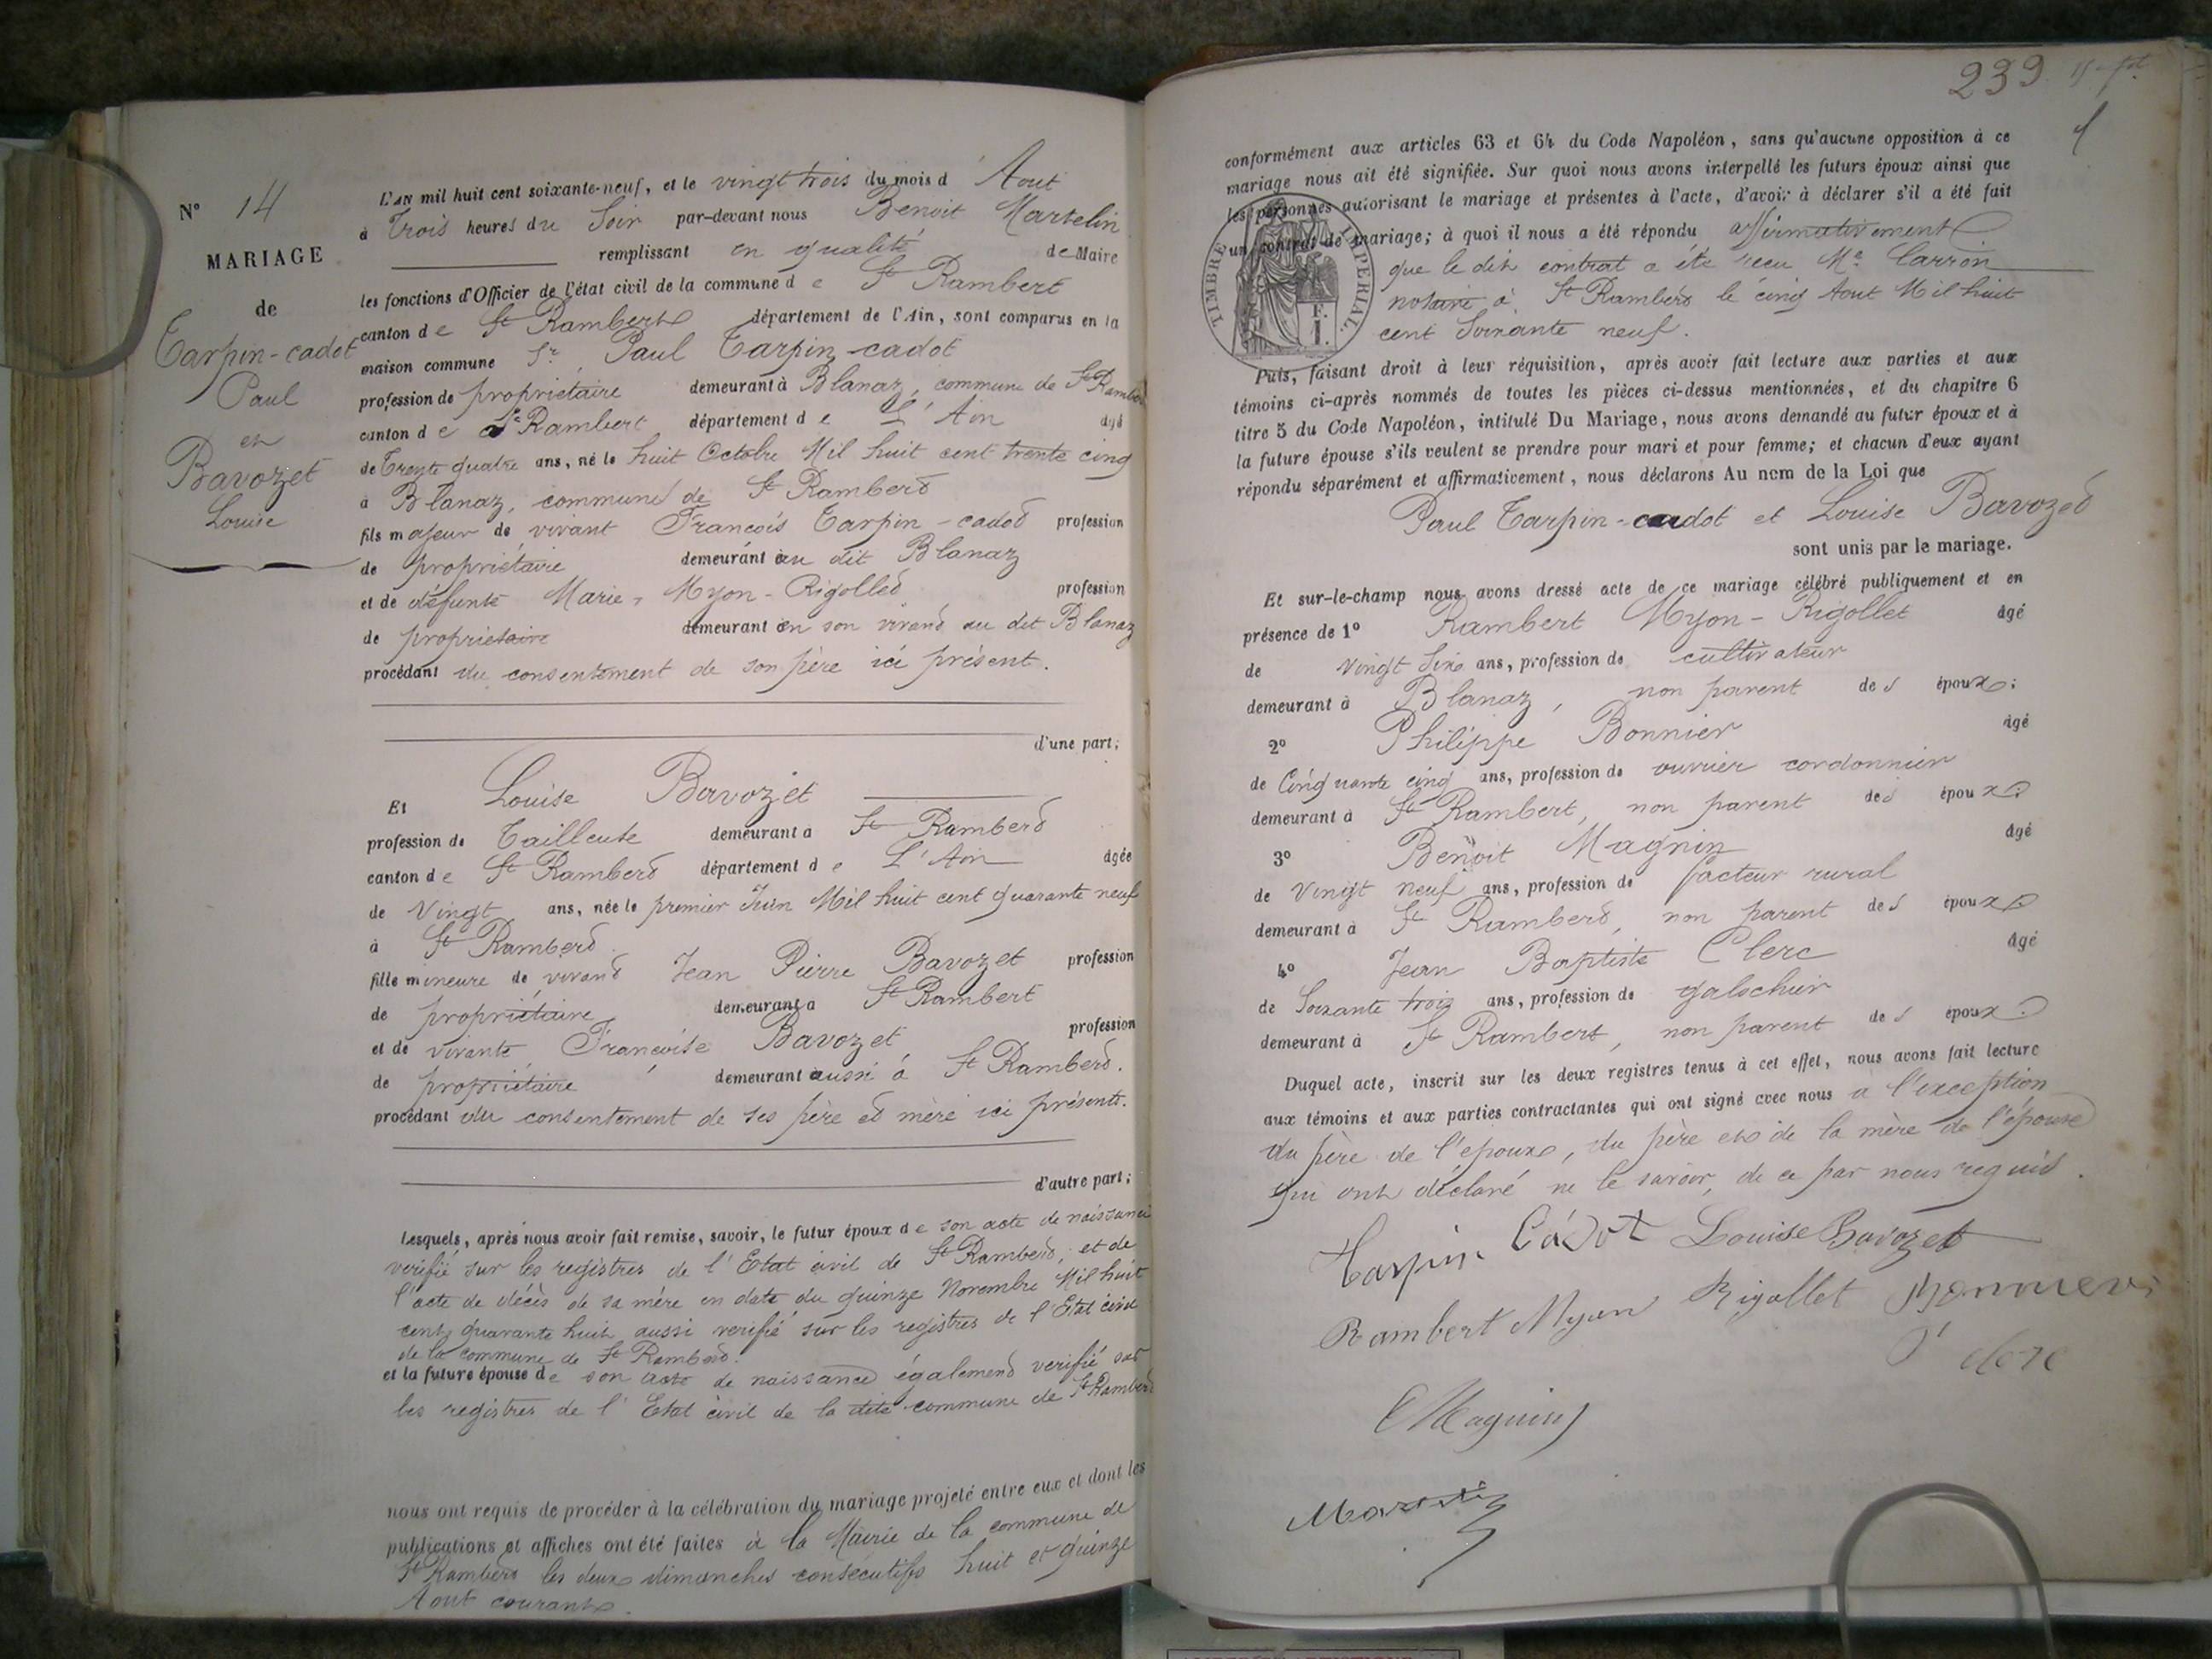 N° 14
MARIAGE
de
Tarpin-cadot
Paul
et
Bavozet
Louise
L'AN mil huit cent soixante-neuf, et le vingt trois du mois d' Aout
à Trois heures du Soir par-devant nous Benoit Martelin
remplissant en qualité de Maire
les fonctions d'Officier de l'état civil de la commune de St Rambert
canton de St Rambert département de l'Ain, sont comparus en la
maison commune Sr Paul Tarpin-cadot
profession de propriétaire demeurant à Blanaz, commune de St Rambert
canton de St Rambert département de L'Ain âgé
de Trente quatre ans, né le huit Octobre Mil huit cent trente cinq
à Blanaz, commune de St Rambert
fils majeur de vivant François Tarpin-cadot profession
de propriétaire demeurant au dit Blanaz
et de défunte Marie, Myon-Rigollet profession
de propriétaire demeurant en son vivant au dit Blanaz
procédant du consentement de son père ici présent.
d'une part;
Et Louise Bavozet
profession de Tailleuse demeurant à St Rambert
canton de St Rambert département de L'Ain âgée
de Vingt ans, née le premier Juin Mil huit cent quarante neuf
à St Rambert
fille mineure de vivant Jean Pierre Bavozet profession
de propriétaire demeurant à St Rambert
et de vivante Françoise Bavozet profession
de propriétaire demeurant aussi à St Rambert.
procédant du consentement de ses père et mère ici présents.
d'autre part;
Lesquels, après nous avoir fait remise, savoir, le futur époux de son acte de naissance
verifié sur les registres de l'Etat civil de St Rambert, et de
l'acte de décès de sa mère en date du quinze Novembre Mil huit
cent quarante huit aussi verifié sur les registres de l'Etat civil
de la commune de St Rambert.
et la future épouse de son acte de naissance également verifié sur
les registres de l'Etat civil de la dite commune de St Rambert
nous ont requis de procéder à la célébration du mariage projeté entre eux et dont les
publications et affiches ont été faites à la Mairie de la commune de
St Rambert les deux dimanches consécutifs huit et quinze
Aout courant.
239
conformément aux articles 63 et 64 du Code Napoléon, sans qu'aucune opposition à ce
mariage nous ait été signifiée. Sur quoi nous avons interpellé les futurs époux ainsi que
les personnes autorisant le mariage et présentes à l'acte, d'avoir à déclarer s'il a été fait
un contrat de mariage; à quoi il nous a été répondu affirmativement
que le dit contrat a été recu Me Carron
notaire à St Rambert le cinq Aout Mil huit
cent Soixante neuf.
TIMBRE IMPERIAL.
1 F.
Puis, faisant droit à leur réquisition, après avoir fait lecture aux parties et aux
témoins ci-après nommés de toutes les pièces ci-dessus mentionnées, et du chapitre 6
titre 5 du Code Napoléon, intitulé Du Mariage, nous avons demandé au futur époux et à
la future épouse s'ils veulent se prendre pour mari et pour femme; et chacun d'eux ayant
répondu séparément et affirmativement, nous déclarons Au nom de la Loi que
Paul Tarpin-cadot et Louise Bavozet
sont unis par le mariage.
Et sur-le-champ nous avons dressé acte de ce mariage célébré publiquement et en
présence de 1° Rambert Myon-Rigollet âgé
de Vingt Six ans, profession de cultivateur
demeurant à Blanaz, non parent des époux;
2° Philippe Bonnier âgé
de Cinquante cinq ans, profession de ouvrier cordonnier
demeurant à St Rambert, non parent des époux
3° Benoit Magnin âgé
de Vingt neuf ans, profession de facteur rural
demeurant à St Rambert, non parent des époux
4° Jean Baptiste Clerc âgé
de Soixante trois ans, profession de galochier
demeurant à St Rambert, non parent des époux
Duquel acte, inscrit sur les deux registres tenus à cet effet, nous avons fait lecture
aux témoins et aux parties contractantes qui ont signé avec nous a l'exception
du père de l'epoux, du père et de la mère de l'épouse
qui ont déclaré ne le savoir, de ce par nous requis.
Tarpin Cadot Louise Bavozet
Rambert Myon Rigollet Bonnier
clerc
Magnin